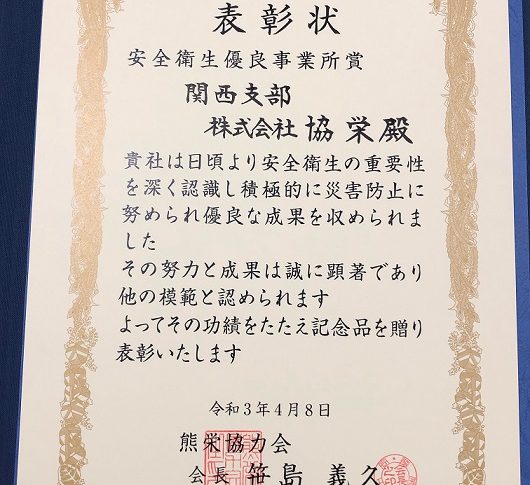 表彰状
安全衛生優良事業所賞
関西支部
株式会社 協栄殿
貴社は日頃より安全衛生の重要性
を深く認識し積極的に災害防止に
努められ優良な成果を収められま
した
その努力と成果は誠に顕著であり
他の模範と認められます
よってその功績をたたえ記念品を贈り
表彰いたします
令和3年4月8日
熊栄協力会
会長 笹島義久